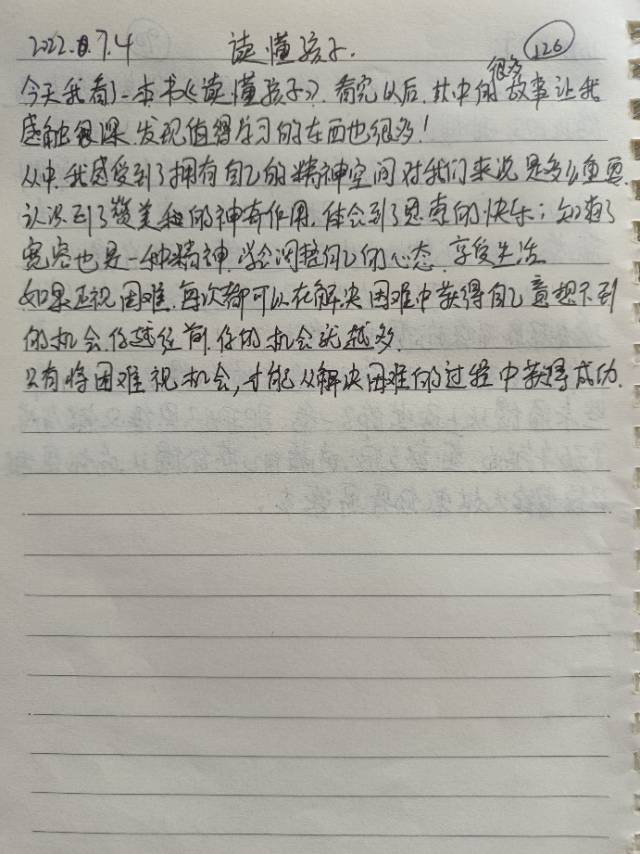 2022.8.7.4 读懂孩子. 126
今天我看了一本书《读懂孩子》. 看完以后, 其中的很多故事让我
感触很深, 发现值得学习的东西也很多!
从中, 我感受到了拥有自己的精神空间对我们来说是多么重要.
认识到了赞美和的神奇作用, 体会到了思考的快乐; 知道了
宽容也是一种精神, 学会调整自己的心态, 享受生活.
如果正视困难, 每次都可以在解决困难中获得自己意想不到
的机会你越往前, 你的机会就越多.
只有将困难视机会, 才能从解决困难的过程中获得成功.